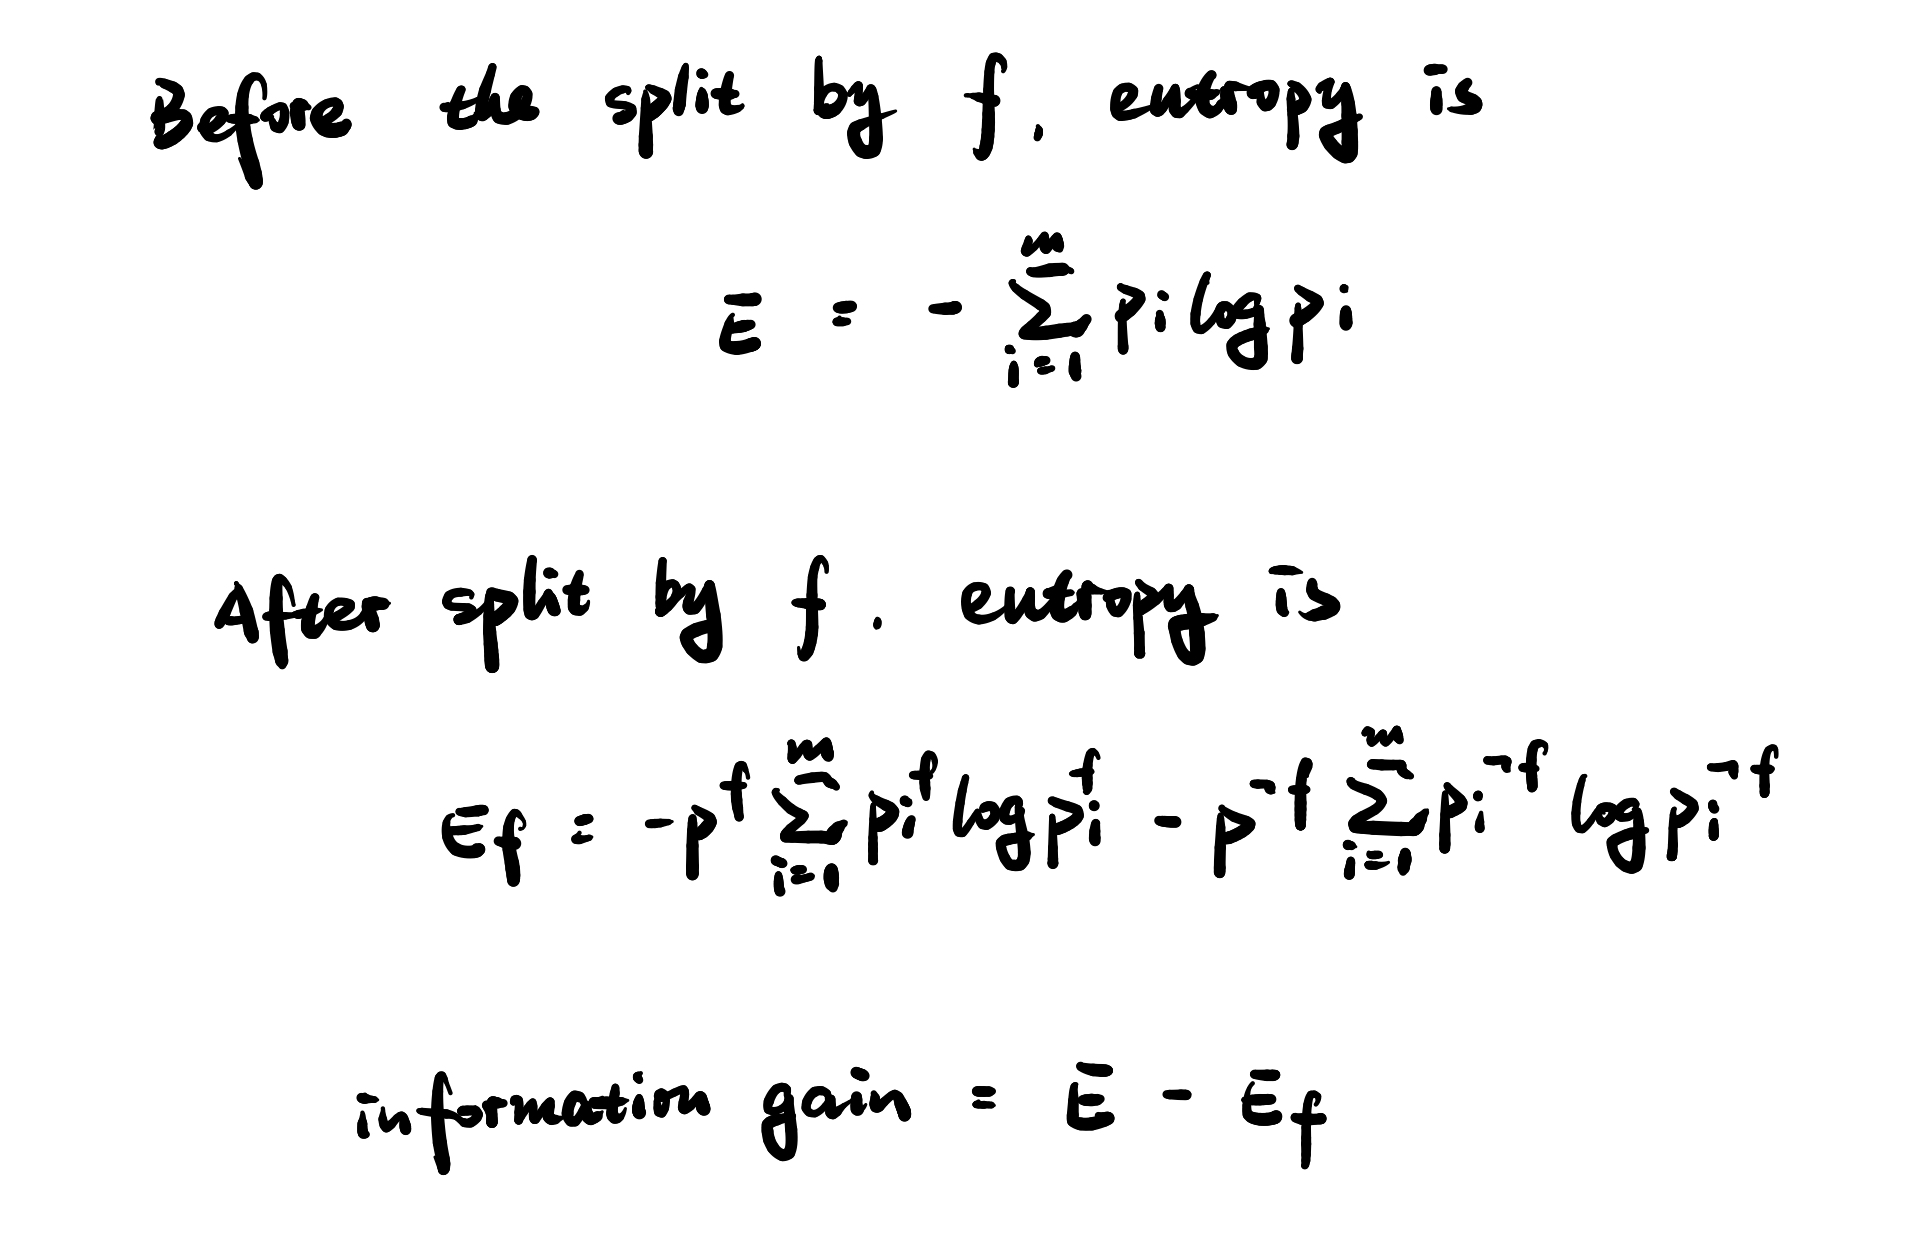 Before the split by f. entropy is
E = - ∑_{i=1}^{m} p_i log p_i
After split by f. entropy is
E_f = -p^f ∑_{i=1}^{m} p_i^f log p_i^f - p^{¬f} ∑_{i=1}^{m} p_i^{¬f} log p_i^{¬f}
information gain = E - E_f